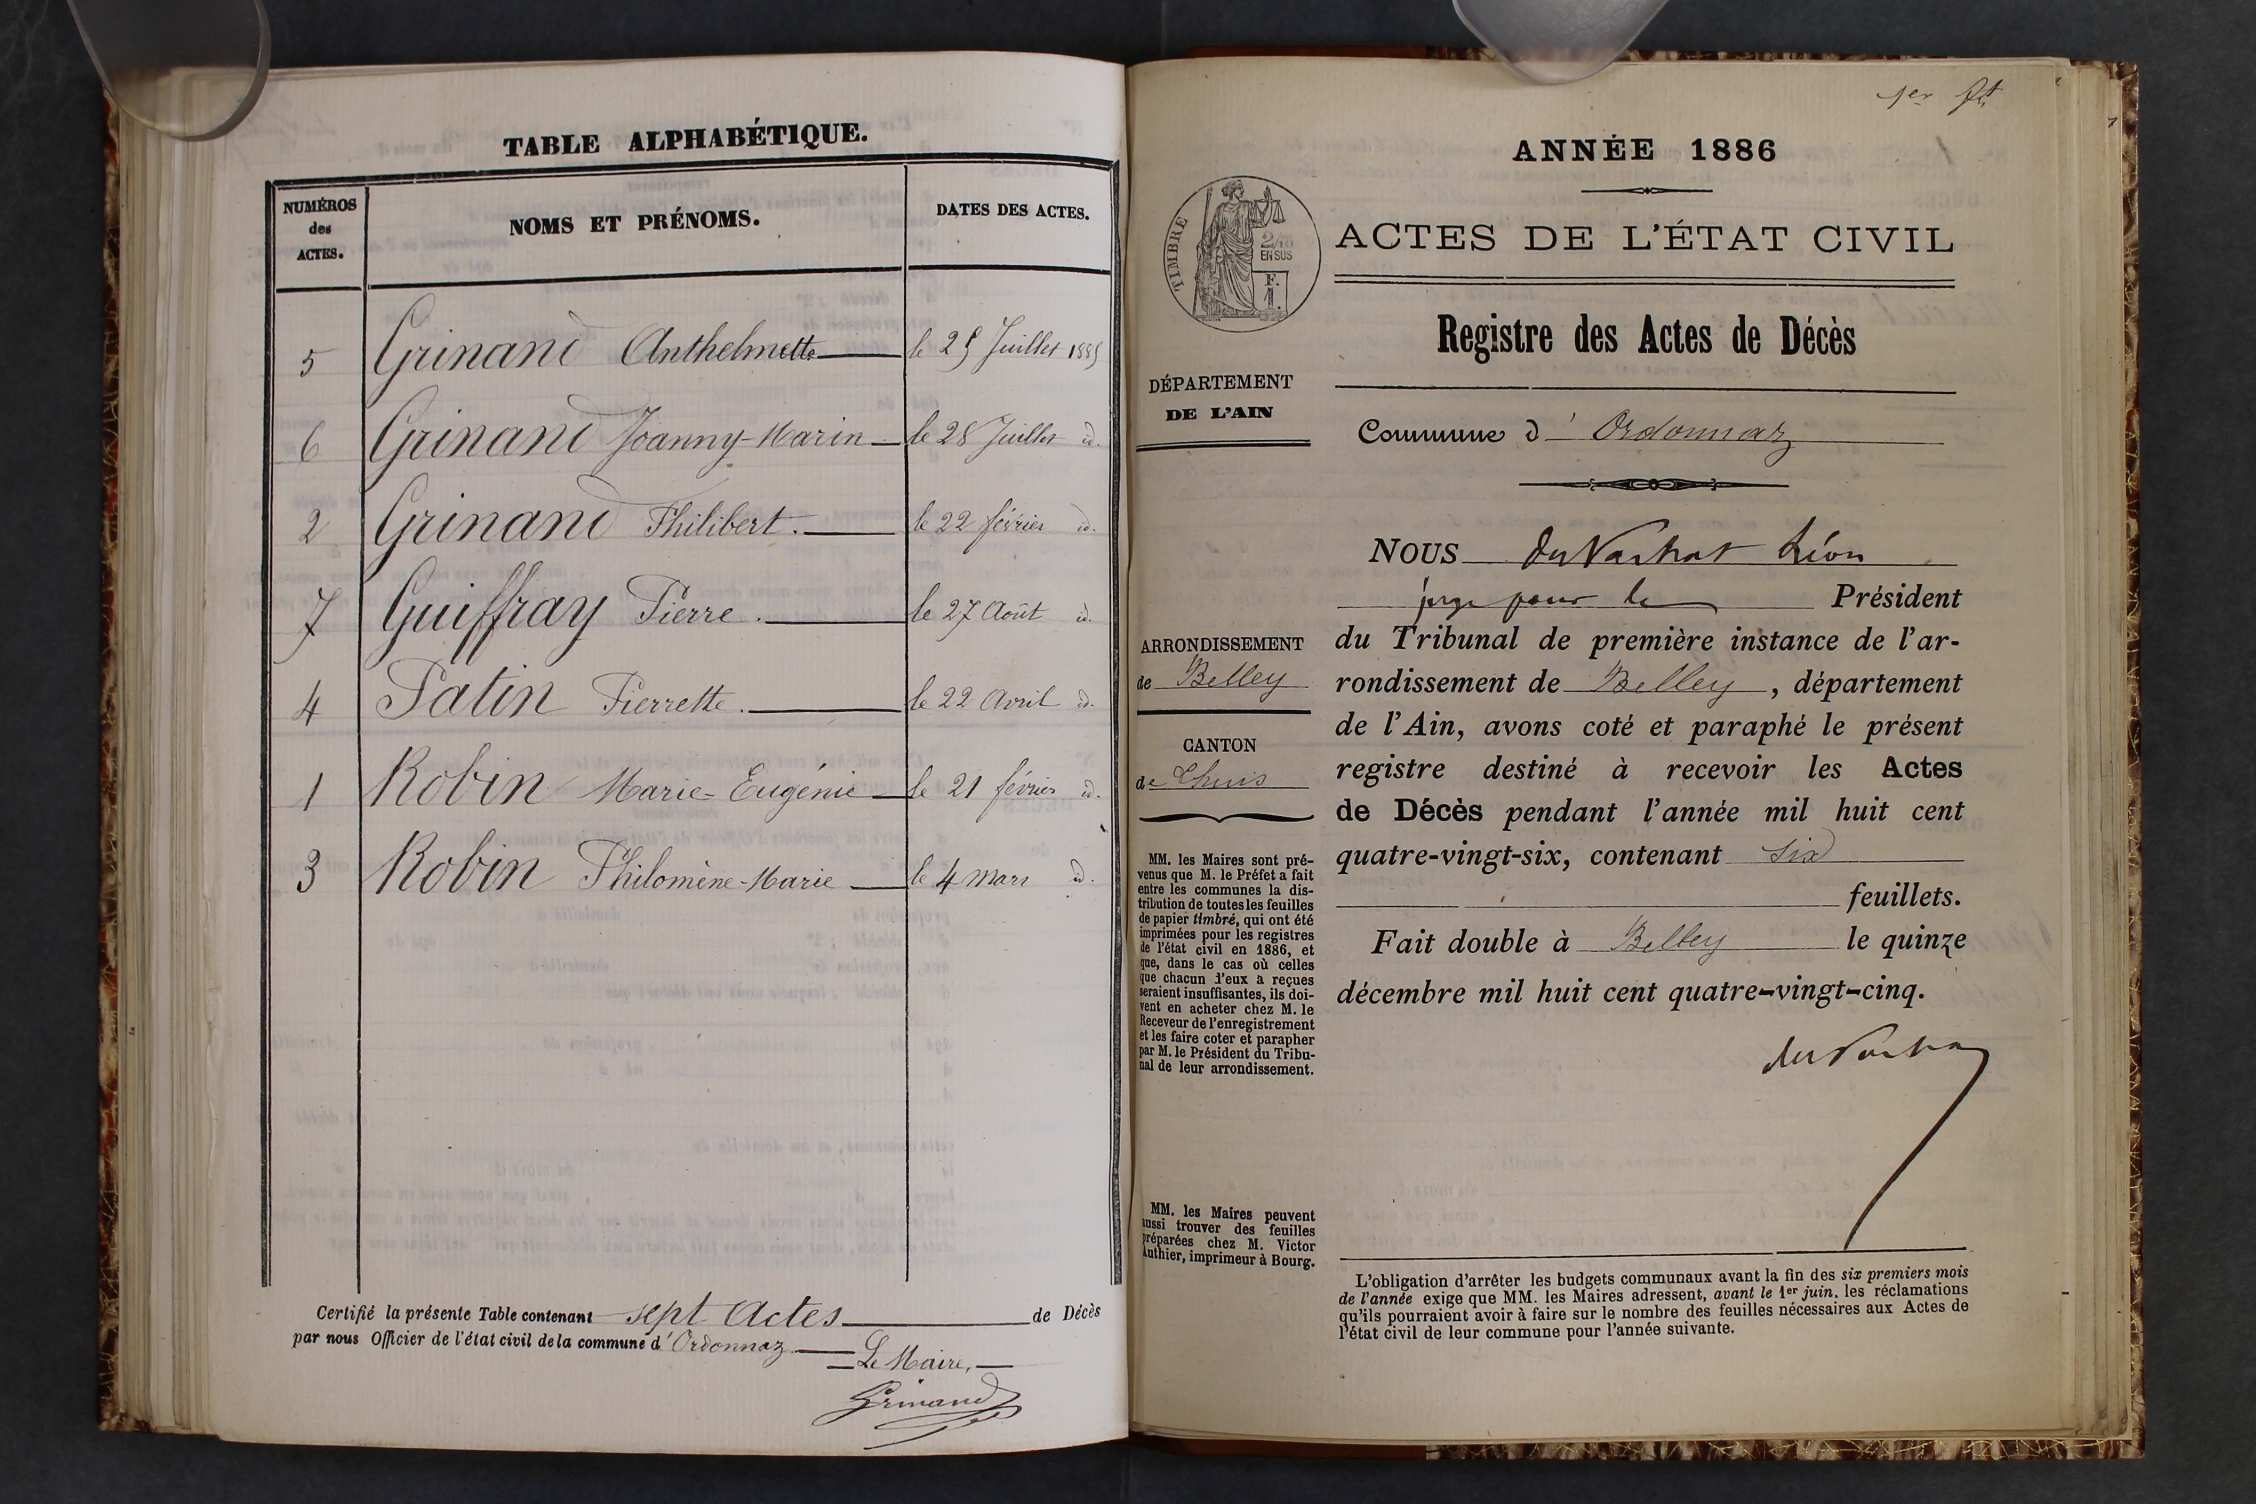 TABLE ALPHABÉTIQUE.
NUMÉROS des ACTES.
NOMS ET PRÉNOMS.
DATES DES ACTES.
5 Grinand Anthelmette le 25 Juillet 1885
6 Grinand Joanny-Marin le 28 Juillet id.
2 Grinand Philibert. le 22 février id.
7 Guiffray Pierre. le 27 Août id.
4 Patin Pierrette. le 22 Avril id.
1 Robin Marie-Eugénie le 21 février id.
3 Robin Philomène-Marie le 4 mars id.
Certifié la présente Table contenant sept Actes de Décès
par nous Officier de l'état civil de la commune d'Ordonnaz
Le Maire,
Grinand
1er
ANNÉE 1886
TIMBRE
2/10
EN SUS
F.
1.
ACTES DE L'ÉTAT CIVIL
Registre des Actes de Décès
DÉPARTEMENT
DE L'AIN
Commune d'Ordonnaz
NOUS du Vachat Léon
juge pour le Président
du Tribunal de première instance de l'ar-
rondissement de Belley, département
de l'Ain, avons coté et paraphé le présent
registre destiné à recevoir les Actes
de Décès pendant l'année mil huit cent
quatre-vingt-six, contenant six
feuillets.
Fait double à Belley le quinze
décembre mil huit cent quatre-vingt-cinq.
du Vachat
ARRONDISSEMENT
de Belley
CANTON
de Lhuis
MM. les Maires sont pré-
venus que M. le Préfet a fait
entre les communes la dis-
tribution de toutes les feuilles
de papier timbré, qui ont été
imprimées pour les registres
de l'état civil en 1886, et
que, dans le cas où celles
que chacun d'eux a reçues
seraient insuffisantes, ils doi-
vent en acheter chez M. le
Receveur de l'enregistrement
et les faire coter et parapher
par M. le Président du Tribu-
nal de leur arrondissement.
MM. les Maires peuvent
aussi trouver des feuilles
préparées chez M. Victor
Authier, imprimeur à Bourg.
L'obligation d'arrêter les budgets communaux avant la fin des six premiers mois
de l'année exige que MM. les Maires adressent, avant le 1er juin, les réclamations
qu'ils pourraient avoir à faire sur le nombre des feuilles nécessaires aux Actes de
l'état civil de leur commune pour l'année suivante.